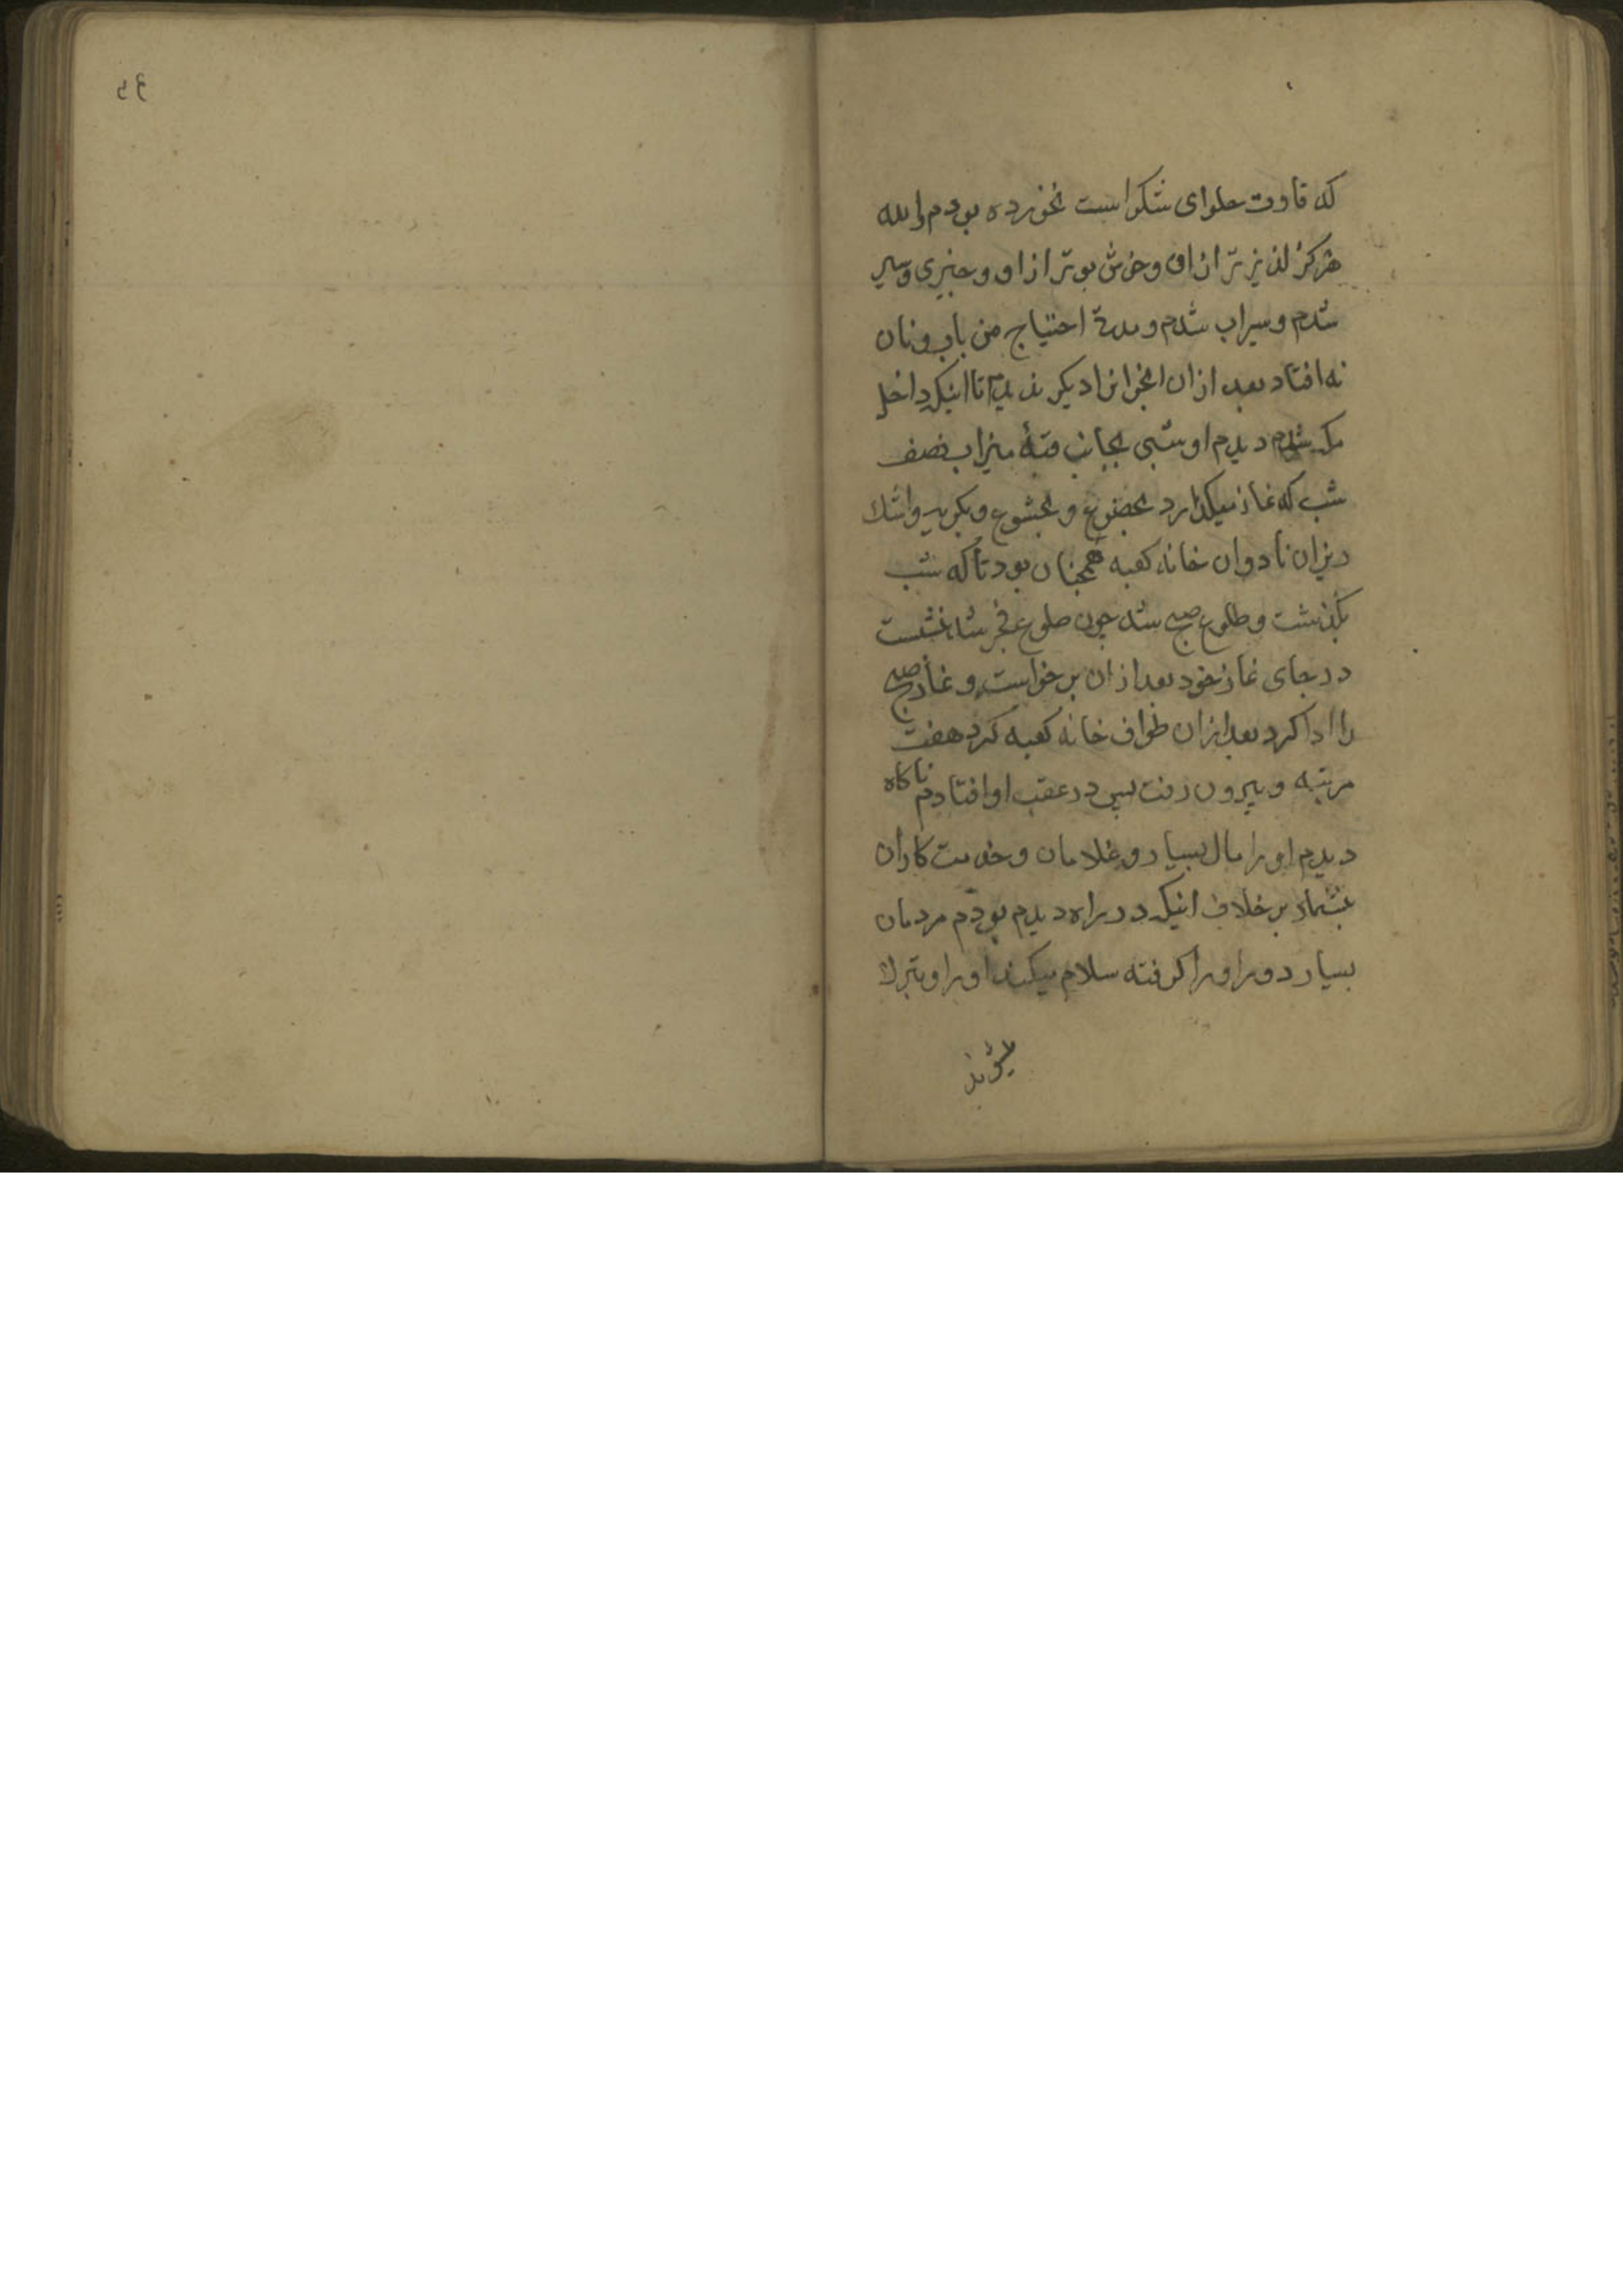 که قاوت حلوای شکر است نخورده بودم والله
هرکز لذیز تر از او وخوش بوتر از او و چیزی وسیر
شدم و سیراب شدم و مدة احتیاج من باب ونان
نه افتاد بعد از ان انجوانرا دیکر ندیدم تا اینکه داخل
مکه شدم دیدم او شبی بجانب قبهٔ میزاب نصف
شب که نماز میکذارد بخضوع و بخشوع و بکریه واشك
ریزان نادوان خانه کعبه همچنان بود تا که شب
بکذشت و طلوع صبح شد چون طلوع فجر شد نشست
در جای نماز خود بعد از ان بر خواست و نماز صبح
را ادا کرد بعد ازان طواف خانه کعبه کرد هفت
مرتبه و بیرون رفت پس در عقب او افتادم ناکاه
دیدم اورا مال بسیار و غلامان و خدمت کاران
بیشمار بر خلاف اینکه در راه دیدم بودم مردمان
بسیار دور اورا کرفته سلام میکنند اورا وتبرك